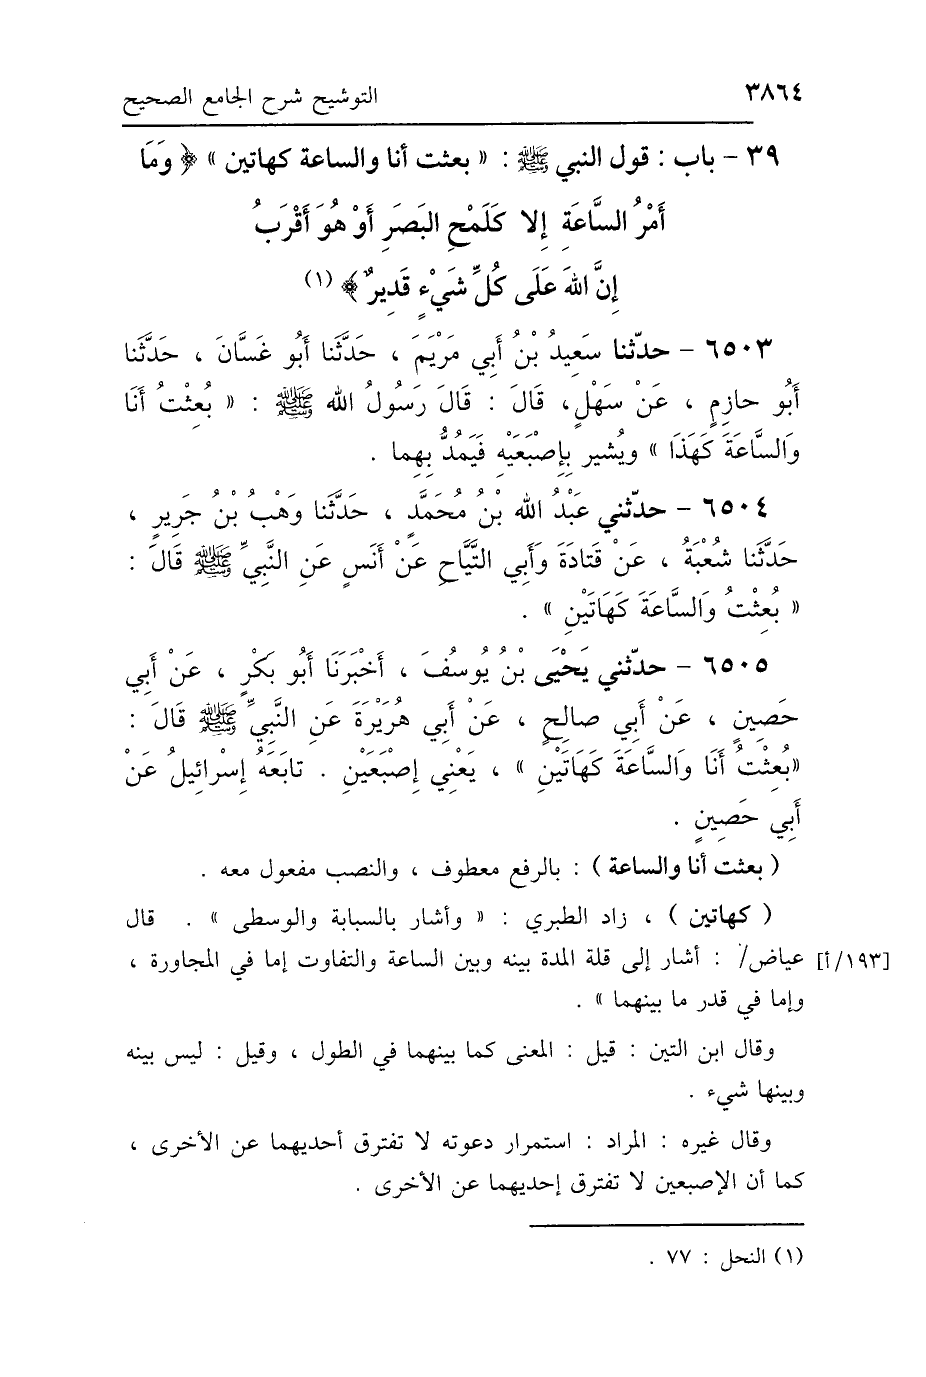 ٣٨٦٤
التوشيح شرح الجامع الصحيح
٣٩ - باب : قول النبي ﷺ : « بعثت أنا والساعة كهاتين » ﴿ وَمَا
أَمْرُ السَّاعَةِ إِلا كَلَمْحِ البَصَرِ أَوْ هُوَ أَقْرَبُ
إِنَّ اللهَ عَلَى كُلِّ شَيْءٍ قَدِيرٌ ﴾ (١)
٦٥٠٣ - حدّثنا سَعِيدُ بْنُ أَبِي مَرْيَمَ ، حَدَّثَنَا أَبُو غَسَّانَ ، حَدَّثَنَا
أَبُو حازِمٍ ، عَنْ سَهْلٍ، قَالَ : قَالَ رَسُولُ الله ﷺ : « بُعِثْتُ أَنَا
وَالسَّاعَةَ كَهَذَا » ويُشير بِإِصْبَعَيْهِ فَيَمُدُّ بِهِما .
٦٥٠٤ - حدّثني عَبْدُ الله بْنُ مُحَمَّدٍ ، حَدَّثَنا وَهْبُ بْنُ جَرِيرٍ ،
حَدَّثَنا شُعْبَةُ ، عَنْ قَتادَةَ وَأَبِي التَّيَّاحِ عَنْ أَنَسٍ عَنِ النَّبِيِّ ﷺ قَالَ :
« بُعِثْتُ وَالسَّاعَةَ كَهَاتَيْنِ » .
٦٥٠٥ - حدّثني يَحْيَى بْنُ يُوسُفَ ، أَخْبَرَنَا أَبُو بَكْرٍ ، عَنْ أَبِي
حَصِينٍ ، عَنْ أَبِي صالِحٍ ، عَنْ أَبِي هُرَيْرَةَ عَنِ النَّبِيِّ ﷺ قَالَ :
«بُعِثْتُ أَنَا وَالسَّاعَةَ كَهَاتَيْنِ » ، يَعْنِي إِصْبَعَيْنِ . تابَعَهُ إِسْرائِيلُ عَنْ
أَبِي حَصِينٍ .
( بعثت أنا والساعة ) : بالرفع معطوف ، والنصب مفعول معه .
( كهاتين ) ، زاد الطبري : « وأشار بالسبابة والوسطى » . قال
عياض/ : أشار إلى قلة المدة بينه وبين الساعة والتفاوت إما في المجاورة ، [١٩٣/أ]
وإما في قدر ما بينهما » .
وقال ابن التين : قيل : المعنى كما بينهما في الطول ، وقيل : ليس بينه
وبينها شيء .
وقال غيره : المراد : استمرار دعوته لا تفترق أحديهما عن الأخرى ،
كما أن الإصبعين لا تفترق إحديهما عن الأخرى .
(١) النحل : ٧٧ .